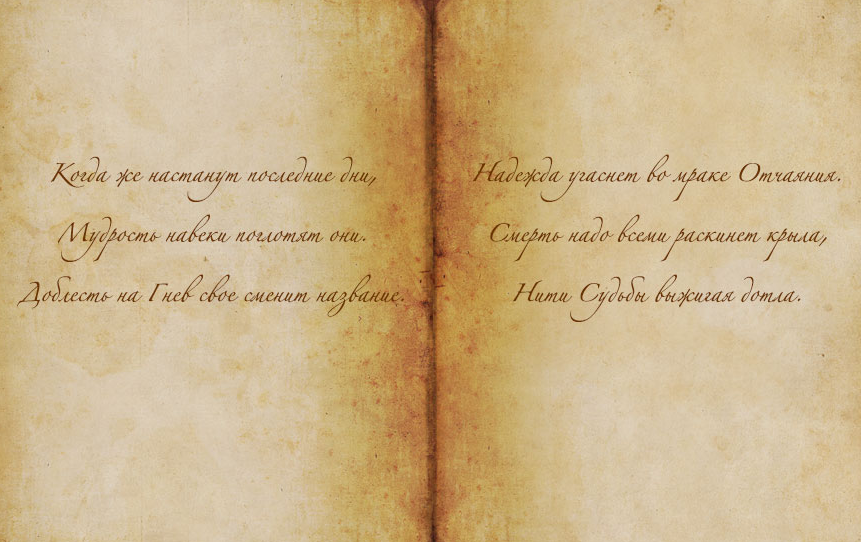 Когда же настанут последние дни,
Мудрость навеки поглотят они.
Доблесть на Гнев свое сменит название.
Надежда угаснет во мраке Отчаяния.
Смерть надо всеми раскинет крыла,
Нити Судьбы выжигая дотла.